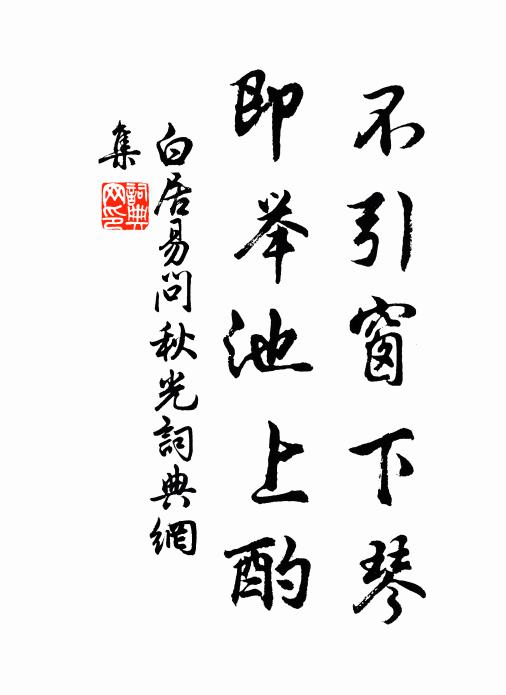 不引窗下琴
即举池上酌
白居易問秋光詞典網
集
詞典
网印